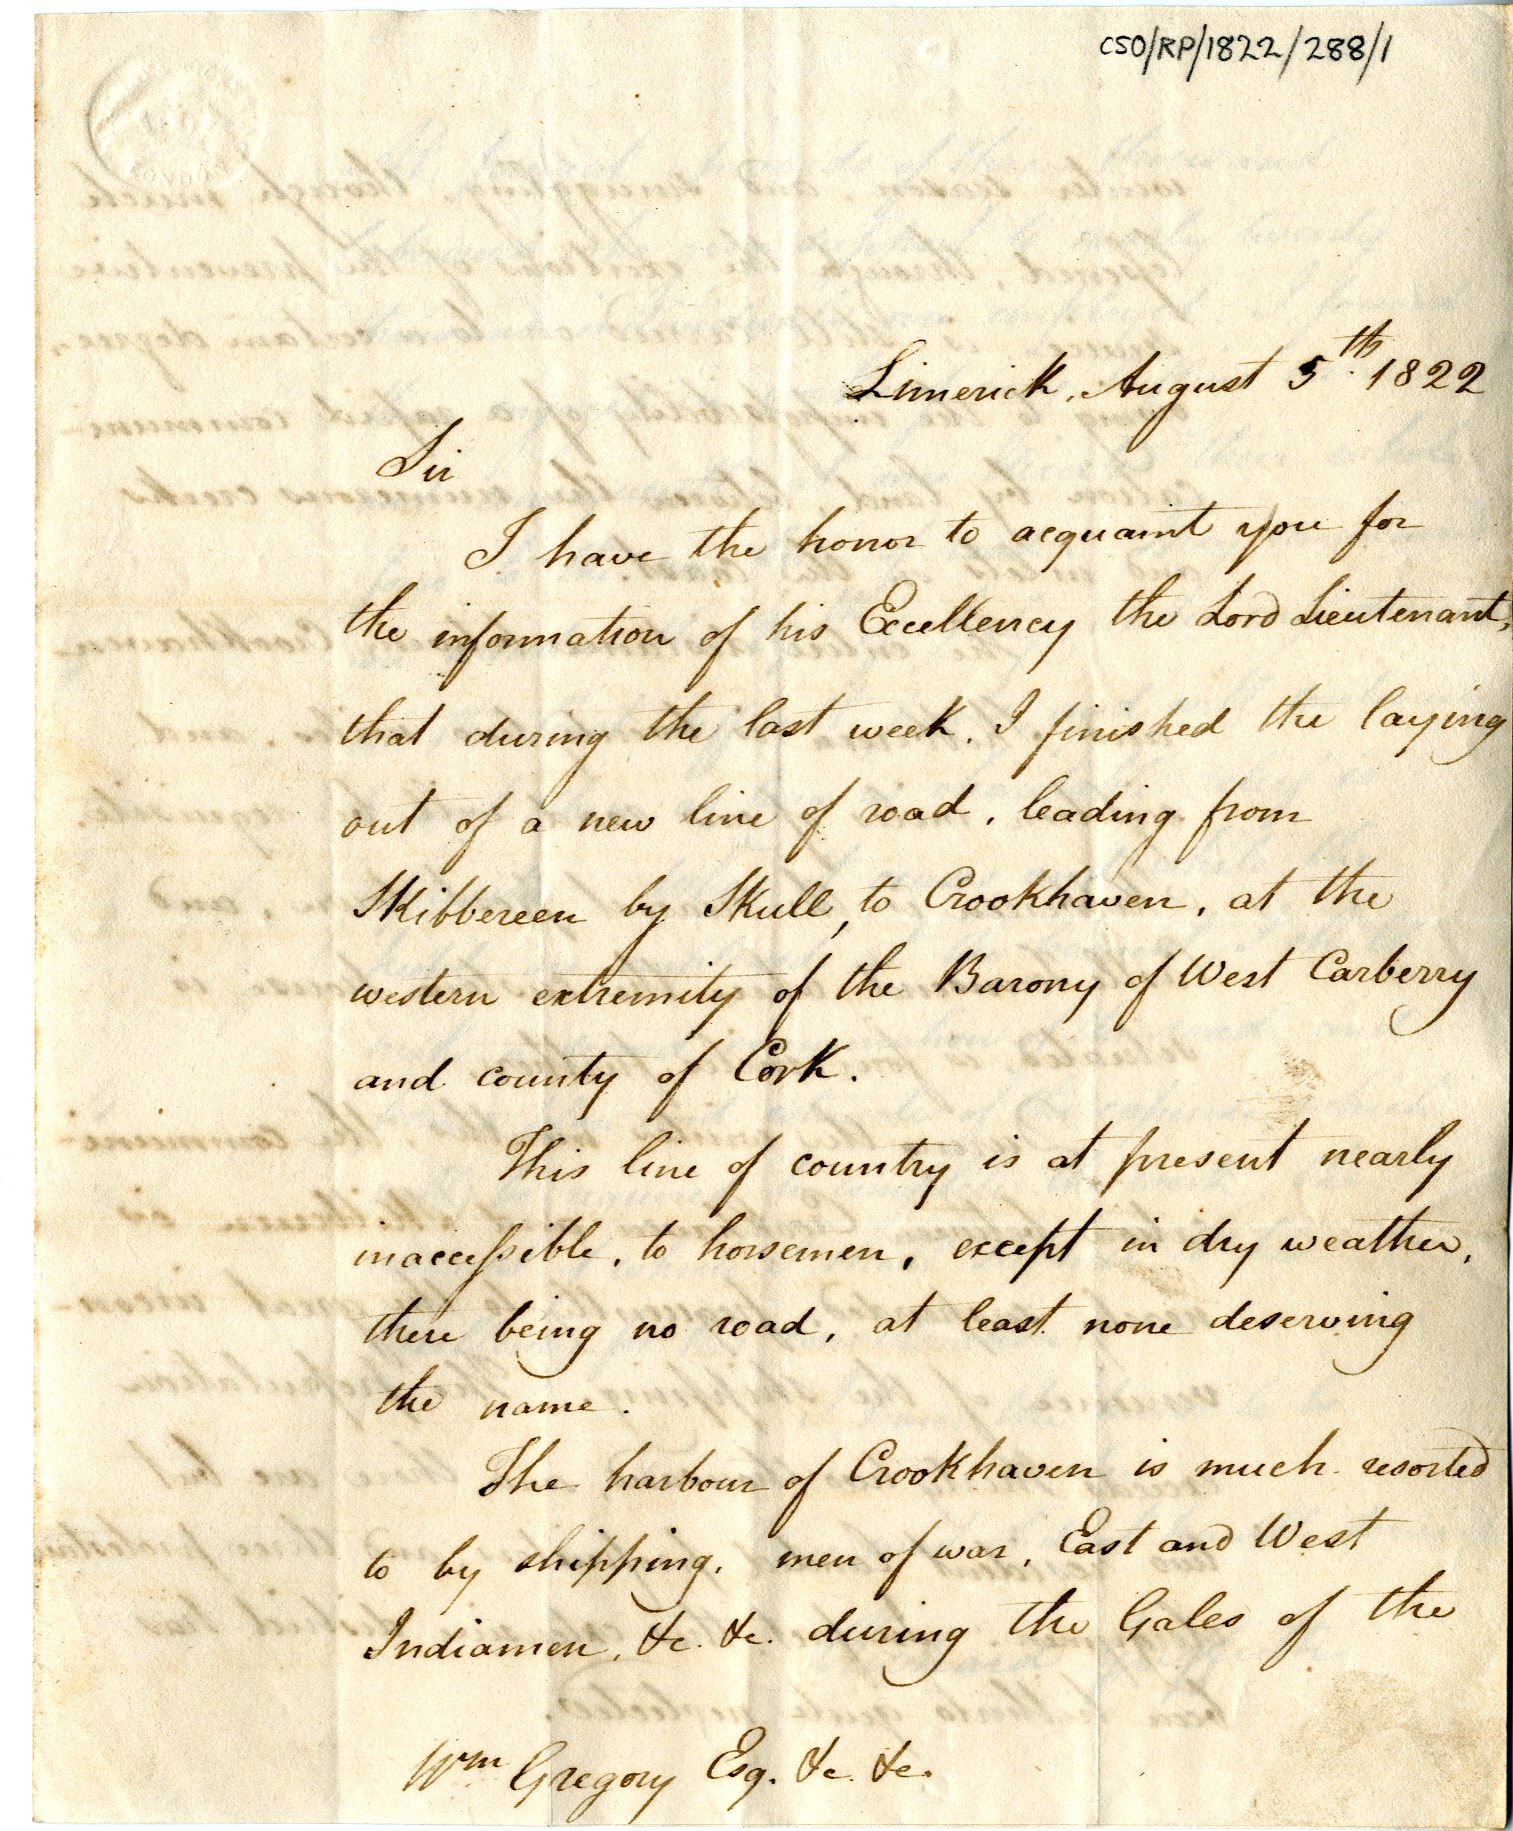 CSO/RP/1822/288/1
Limerick, August 5th. 1822
Sir
I have the honor to acquaint you for
the information of his Excellency the Lord Lieutenant,
that during the last week, I finished the laying
out of a new line of road, leading from
Skibbereen by Skull, to Crookhaven, at the
western extremity of the Barony of West Carberry
and county of Cork.
This line of country is at present nearly
inaccessible, to horsemen, except in dry weather,
there being no road, at least none deserving
the name.
The harbour of Crookhaven is much resorted
to by shipping, men of war, East and West
Indiamen, &c. &c. during the Gales of the
Wm Gregory Esq. &c. &c.